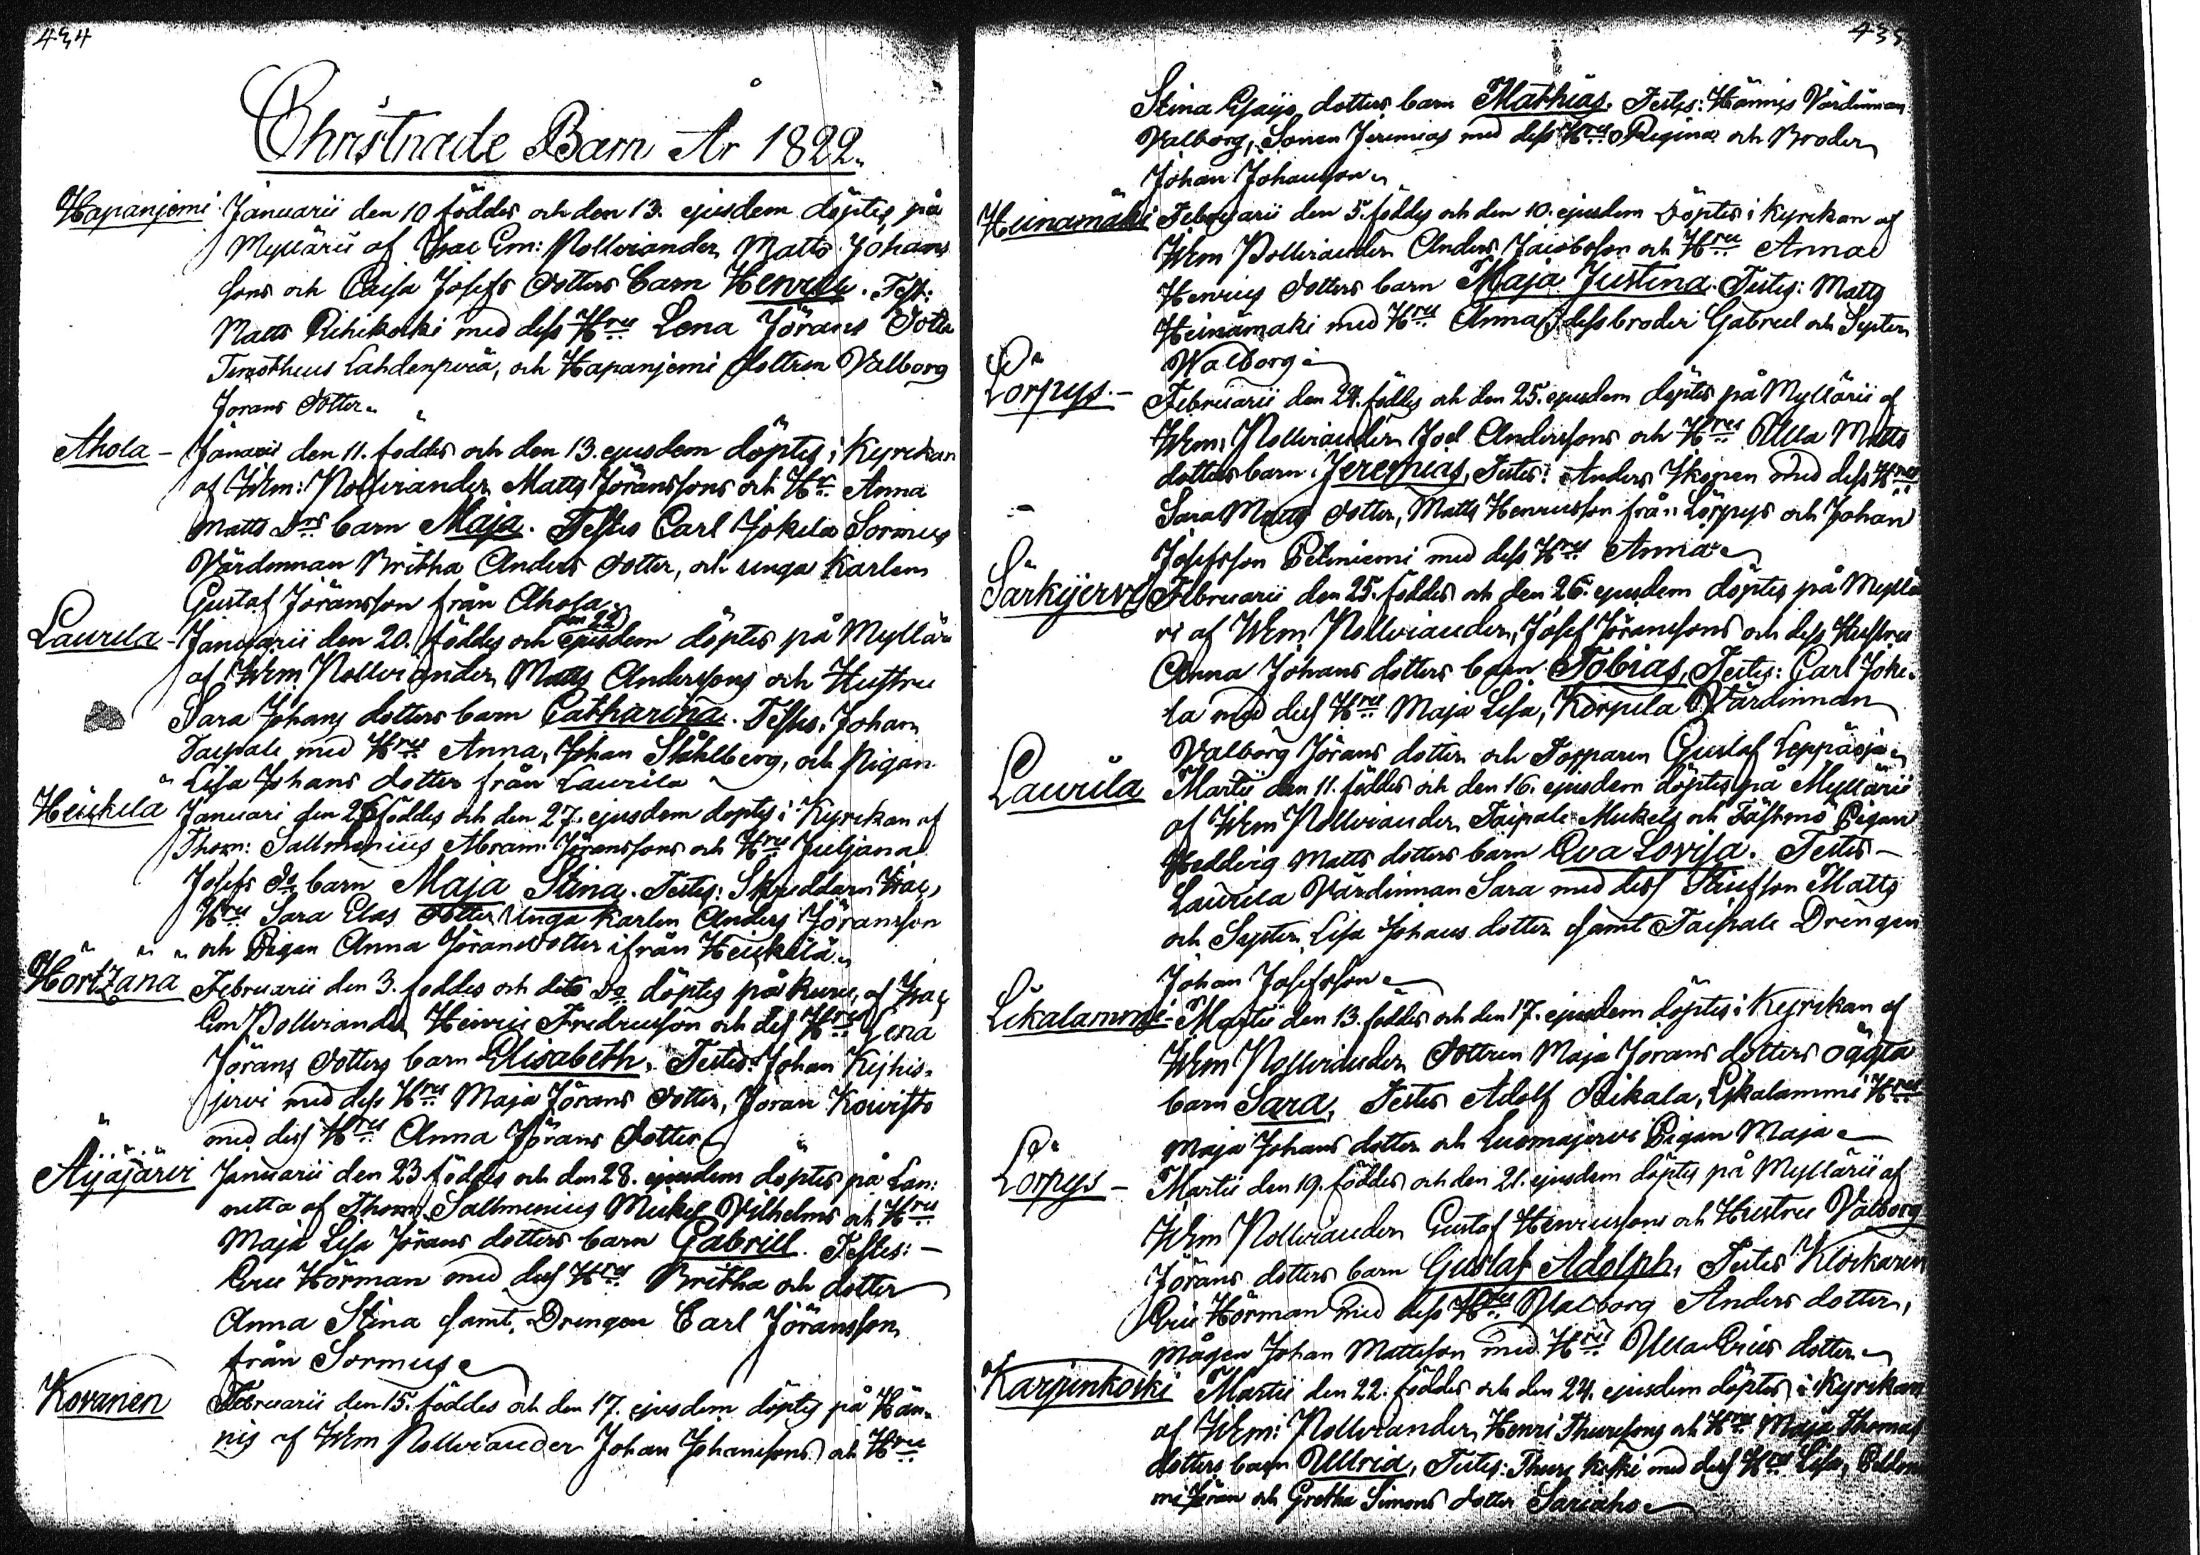 434
Christnade Barn År 1822.
Hapanjemi Januarii den 10 föddes och den 13. ejusdem döptes på
Myllärii af Isac Em: Pollviander Matts Johans
sons och Caisa Josefs dotters barn Henric. Test:
Matts Riihikoski med dess Hru Lena Jörans dotter
Timotheus Lahdenperä, och Hapanjemi Dottren Valborg
Jorans dotter.
Ahola - Januarii den 11. föddes och den 13. ejusdem döptes i Kyrckan
af Wem: Pollviander Matts Jöranssons och Hr. Anna
Matts Drs barn Maja. Testes Carl Jokela Sormus
Värdinnan Britha Anders dotter, och unga Karlen
Gustaf Jöransson från Ahola.
Laurila - Januarii den 20. föddes och den 22 ejusdem döptes på Mylläri
af Wem Pollviander Matts Anderssons och Hustru
Sara Johans dotters barn Catharina. Testes. Johan
Taipale med Hru Anna, Johan Ståhlberg, och Pigan
Lisa Johans dotter från Laurila
Heickilä Januari den 26 föddes och den 27. ejusdem doptes i Kyrckan af
Thom: Sallmenius Abram Jöranssons och Hru Juljana
Josefs do barn Maja Stina. Testes: Skreddarn Isac,
Hru Sara Elas dotter Unga Karlen Anders Jöransson
och Pigan Anna Jöransdotter ifrån Heickilä.
Hörtzänä Februarii den 3. foddes och dito do döptes på Kuru, af Isac
Em Pollviander Heinric Fredricsson och dess Hru Lena
Jörans dotters barn Elisabeth. Testes: Johan Keihis-
jervi med dess Hru Maja Jörans dotter, Joran Koivisto
med dess Hru Anna Jörans dotter
Äijäjärvi Januarii den 23. föddes och den 28. ejusdem döptes på Lan:
netta af Thom. Sallmenius Mickel Vilhelms och Hru
Maja Lisa Jörans dotters barn Gabriel. Testes: -
Eric Hörman med dess Hru Britha och dotter
Anna Stina samt, Drengen Carl Jöransson
från Sormus
Kovanen Februarii den 15. föddes och den 17. ejusdem döptes på Hän-
nis af Wem Pollviander Johan Johanssons och Hru
435
Stina dotters barn Mathias. Testes: Hännis Värdinnan
Valborg, Sonen Jeremias med dess Hru Regina och Broder
Johan Johansson
Heinamäki Februarii den 5. föddes och den 10. ejusdem Döptes i Kyrckan af
Wem Pollviander Anders Jacobsson och Hru Anna
Henrics dotters barn Maja Justina. Testes: Matts
Heinämaki med Hru Anna, dess broder Gabriel och Syster
Walborg
Lörpys. - Februarii den 24. föddes och den 25. ejusdem döptes på Myllärii af
Wem. Pollviander Joel Anderssons och Hru Ulla Matts
dotters barn Jeremias, Testes: Anders Ikonen med dess Hru
Sara Matts dotter, Matts Henricsson från Lörpys och Johan
Josefsson Peltniemi med dess Hru Anna
Särkijervi Februarii den 25. föddes och den 26. ejusdem döptes på Myllä
ri af Wem Pollviander, Josef Jöranssons och dess Hustru
Anna Johans dotters barn Tobias, Testes: Carl Joke-
la med dess Hru Maja Lisa, Korpela Värdinnan
Valborg Jörans dotter och Torparen Gustaf Leppäoja
Laurila Martii den 11. föddes och den 16. ejusdem döptes på Myllärii
af Wem Pollviander Taipale Mickels och Fästmö Pigan
Hedvig Matts dotters barn Eva Lovisa. Testes -
Laurila Värdinnan Sara med dess Stiufson Matts
och Syster, Lisa Johans dotter samt Taipale Drengen
Johan Josefsson
Likalammi - Martii den 13. föddes och den 17. ejusdem döptes i Kyrckan af
Wem Pollviander dottren Maja Jorans dotters oägta
barn Sara, Testes Adolf Likalammi Hru
Maja Johans dotter och Luomajervi Pigan Maja
Lörpys - Martii den 19. föddes och den 21. ejusdem döptes på Myllärii af
Wem Pollviander Gustaf Henricssons och Hustru Valborg
Jörans dotters barn Gustaf Adolph, Testes Klockaren
Eric Hörman med dess Hru Valborg Anders dotter,
mågen Johan Mattsson med Hru Ulla Erics dotter
Karjinkoski Martii den 22. föddes och den 24. ejusdem döptes i Kyrckan
af Wem: Pollviander, Henri Thuressons och Hru Maja Thomas
dotters barn Ullrica, Testes: Thure Koski med dess Hru Lisa,
Jöran och Gretha Simons dotter Sariaho